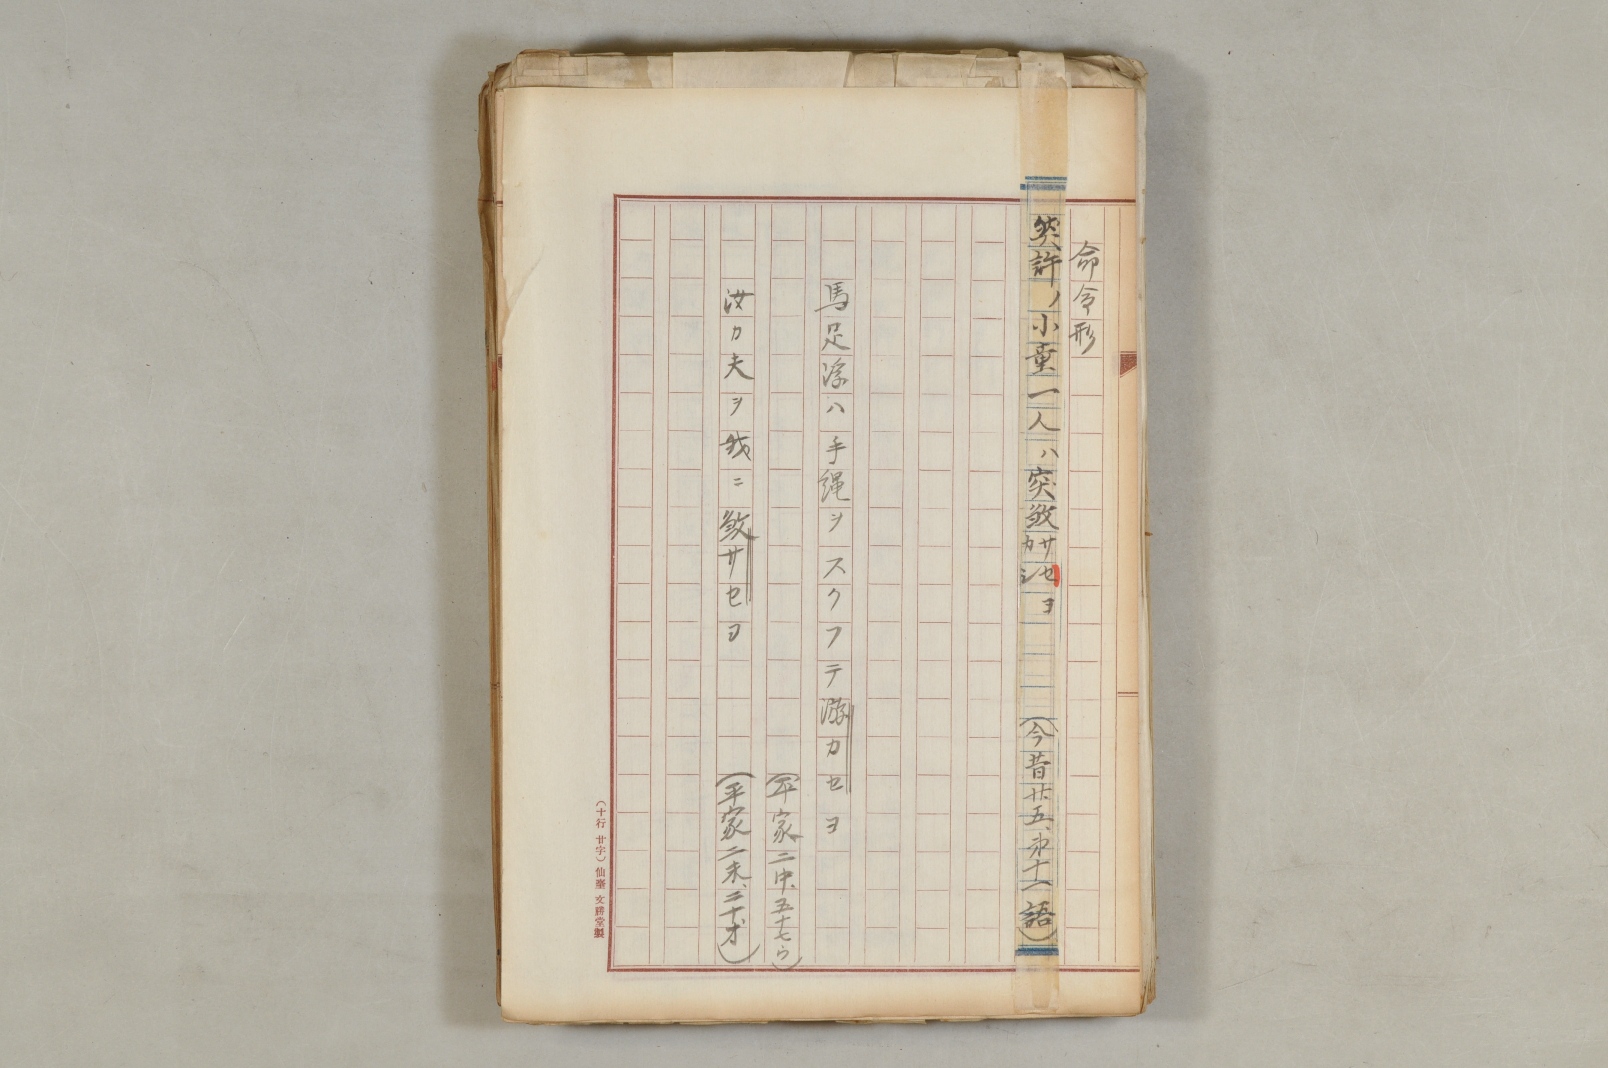 命令形
然許ノ小童一人ハ突殺サセヨ
カシ
(今昔廿五、第十一語)
馬足浮ハ手縄ヲスクフテ游カセヨ
(平家二中、五十七ウ)
汝カ夫ヲ我ニ殺サセヨ
(平家二末、二十才)
(十行 廿字) 仙臺 文勝堂製